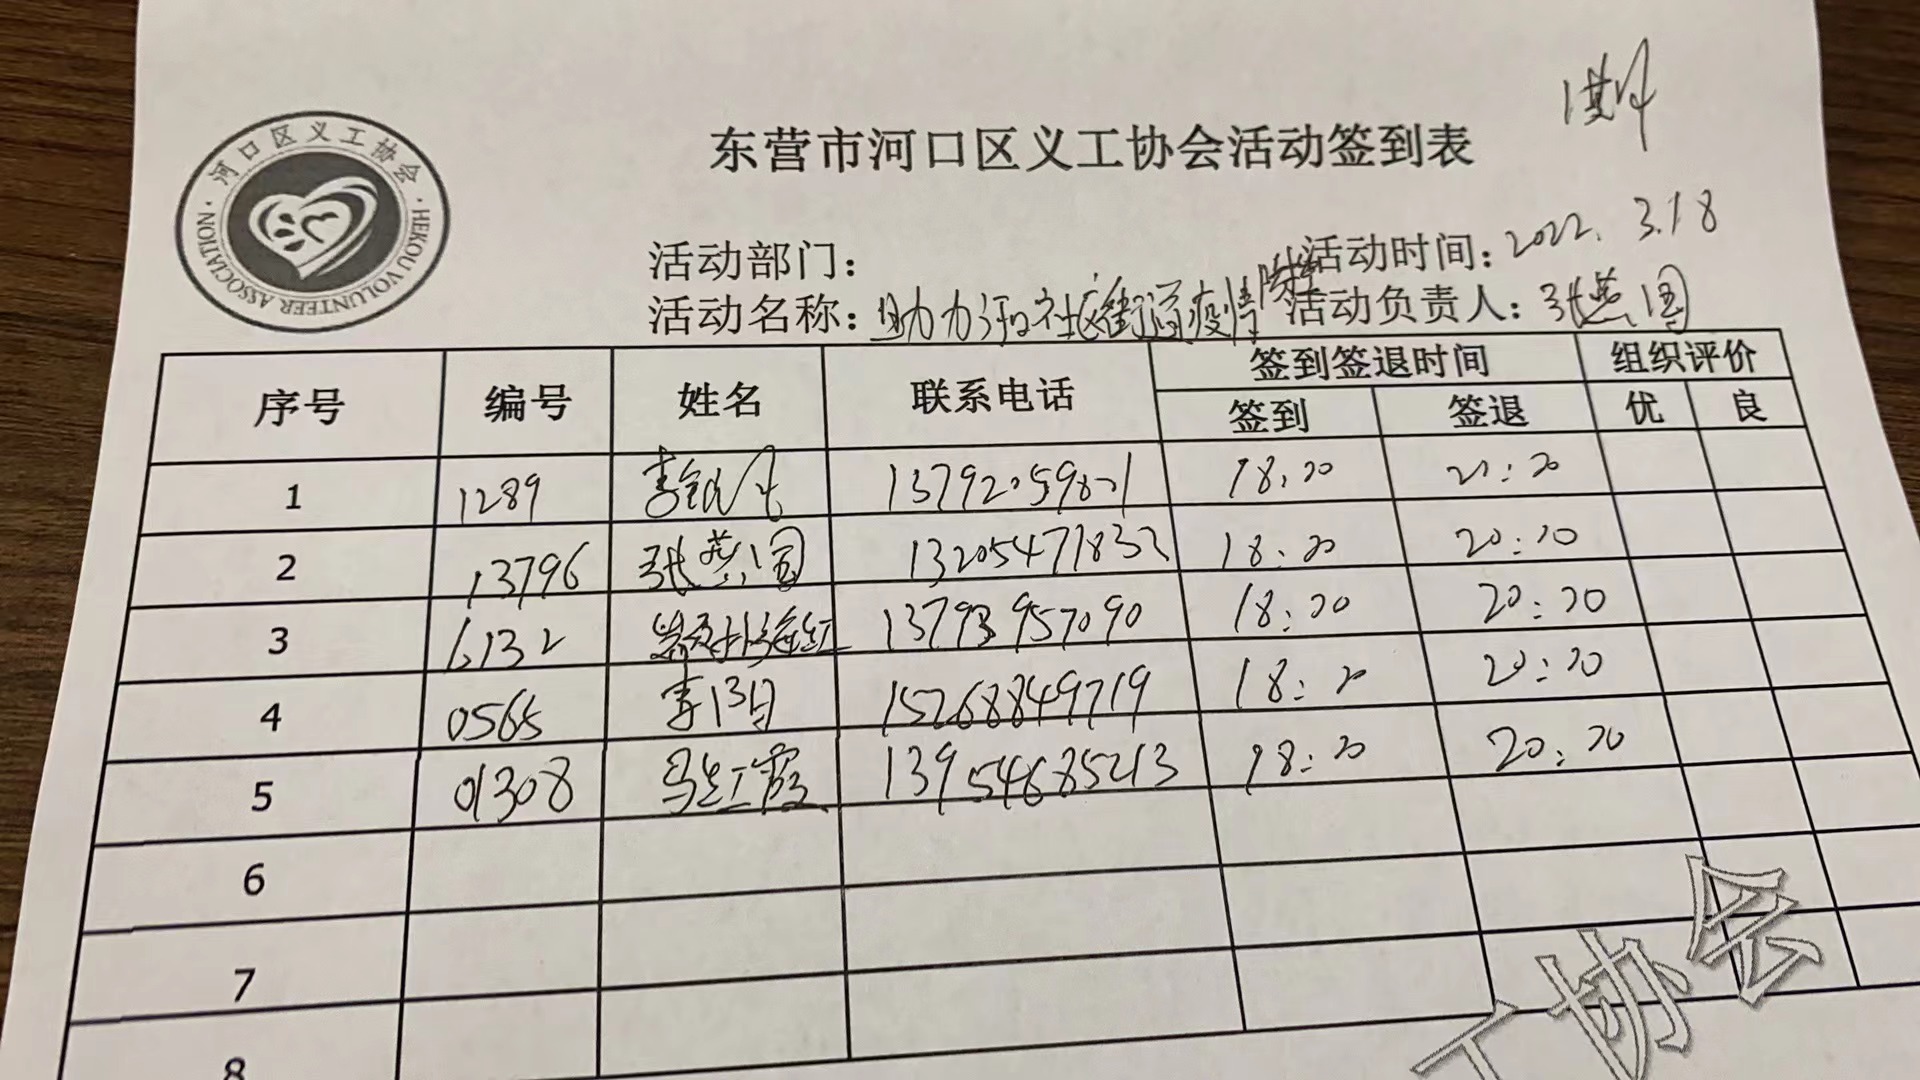 河口区义工协会
HEKOU VOLUNTEER ASSOCIATION
东营市河口区义工协会活动签到表
活动部门： 活动时间：2022.3.18
活动名称：助力河口社区街道疫情 活动负责人：张燕国
序号 编号 姓名 联系电话 签到签退时间 组织评价
签到 签退 优 良
1 1289 18:20
2 13796 张燕国 13205471832 18:20 20:20
3 6132 海红 13793957090 18:20 20:20
4 0565 李 15268849719 18:20 20:20
5 01308 马红霞 13954685213 18:20 20:20
6
7
8
工协会